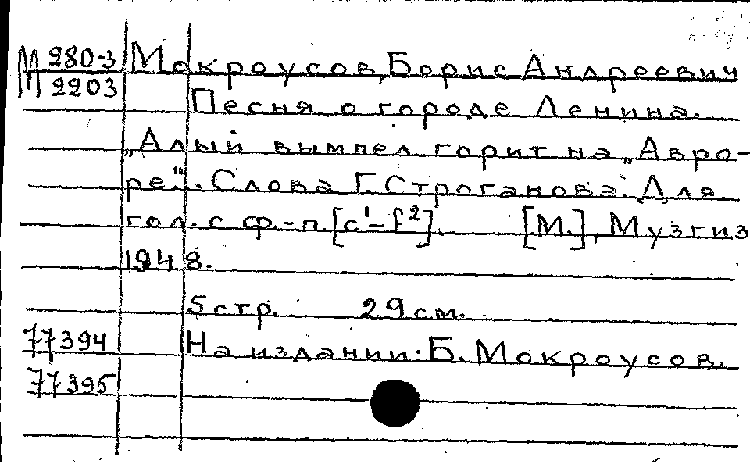 М 280-3 Мокроусов, Борис Андреевич
2203 Песня о городе Ленина.
„Алый вымпел горит на „Авро-
ре". Слова Г. Строганова. Для
гол. с ф.-п. [c¹-f²]. [М.], Музгиз
1948.
5 стр. 29 см.
77394 На издании: Б. Мокроусов.
77395